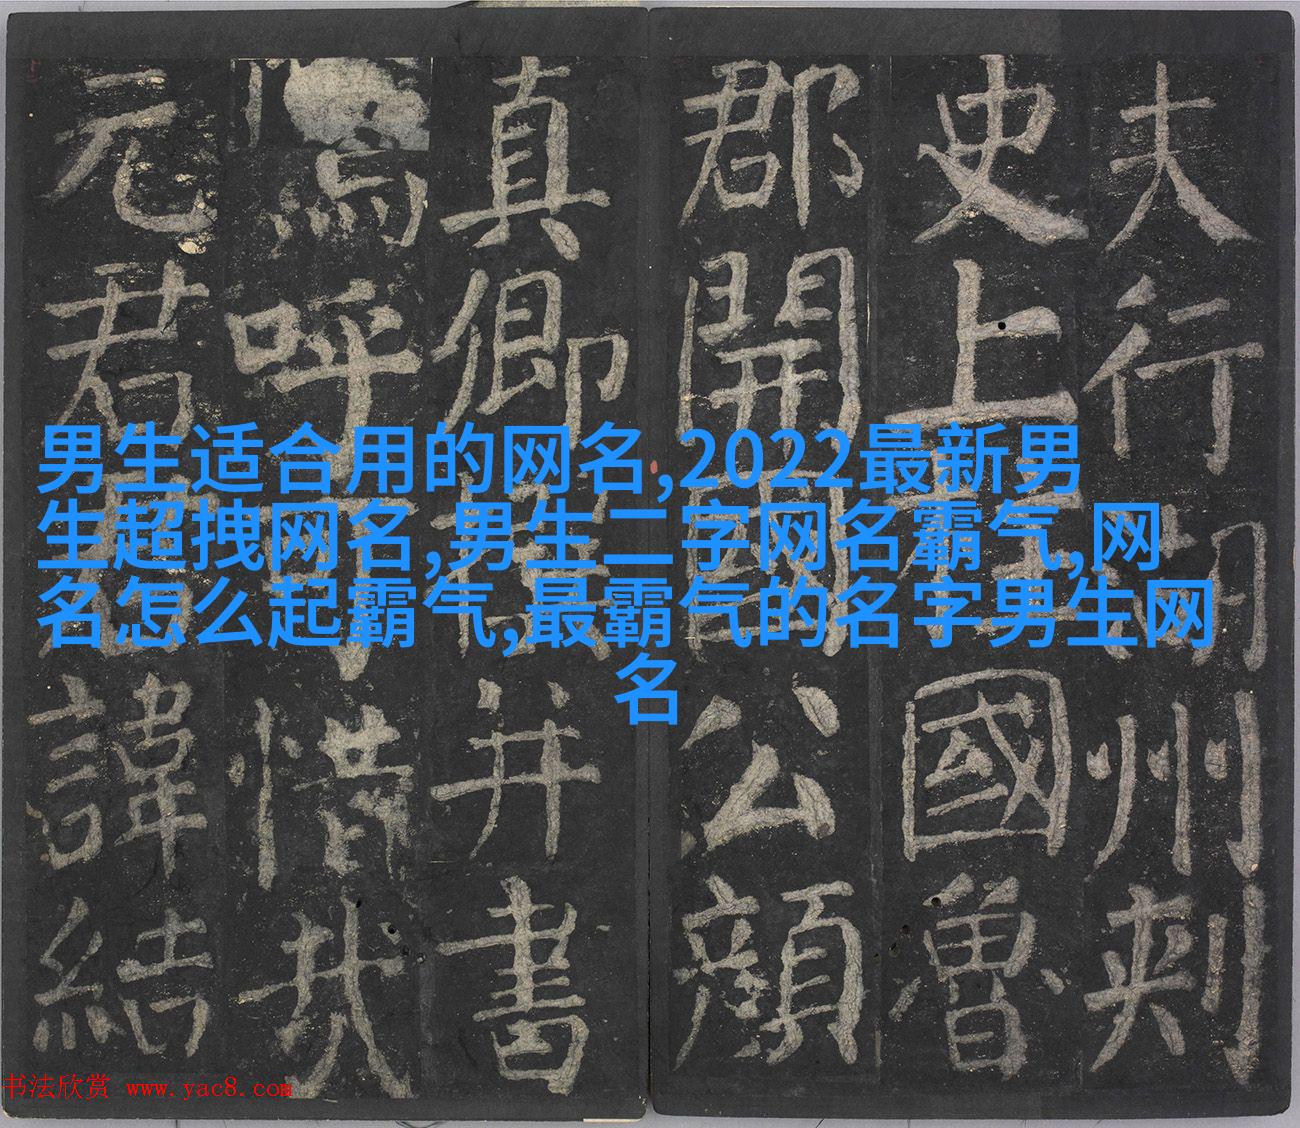 夫行湖州刺
史上柱國魯
郡開國公顏
真卿撰并書
嗚呼可惜哉
元君君諱結
男生适合用的网名,2022最新男
生超拽网名,男生二字网名霸气,网
名怎么起霸气,最霸气的名字男生网
名
书法欣赏 www.yac8.com